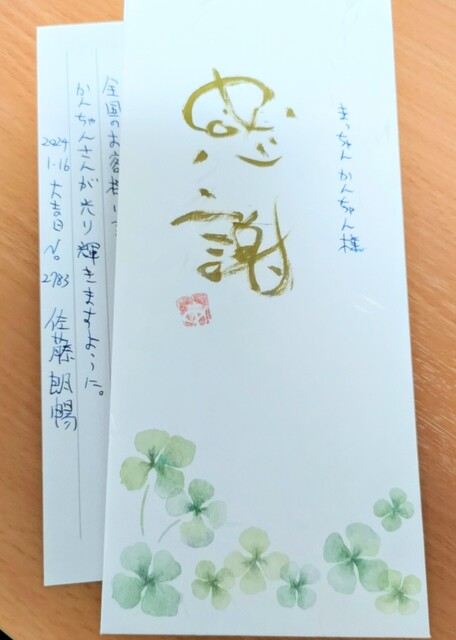 きっちゃんかんちゃん様
感
謝
全国のお客様
かんちゃんさんが光り輝きますように。
2024
1.16 大吉日 No 2983 佐藤朗暢